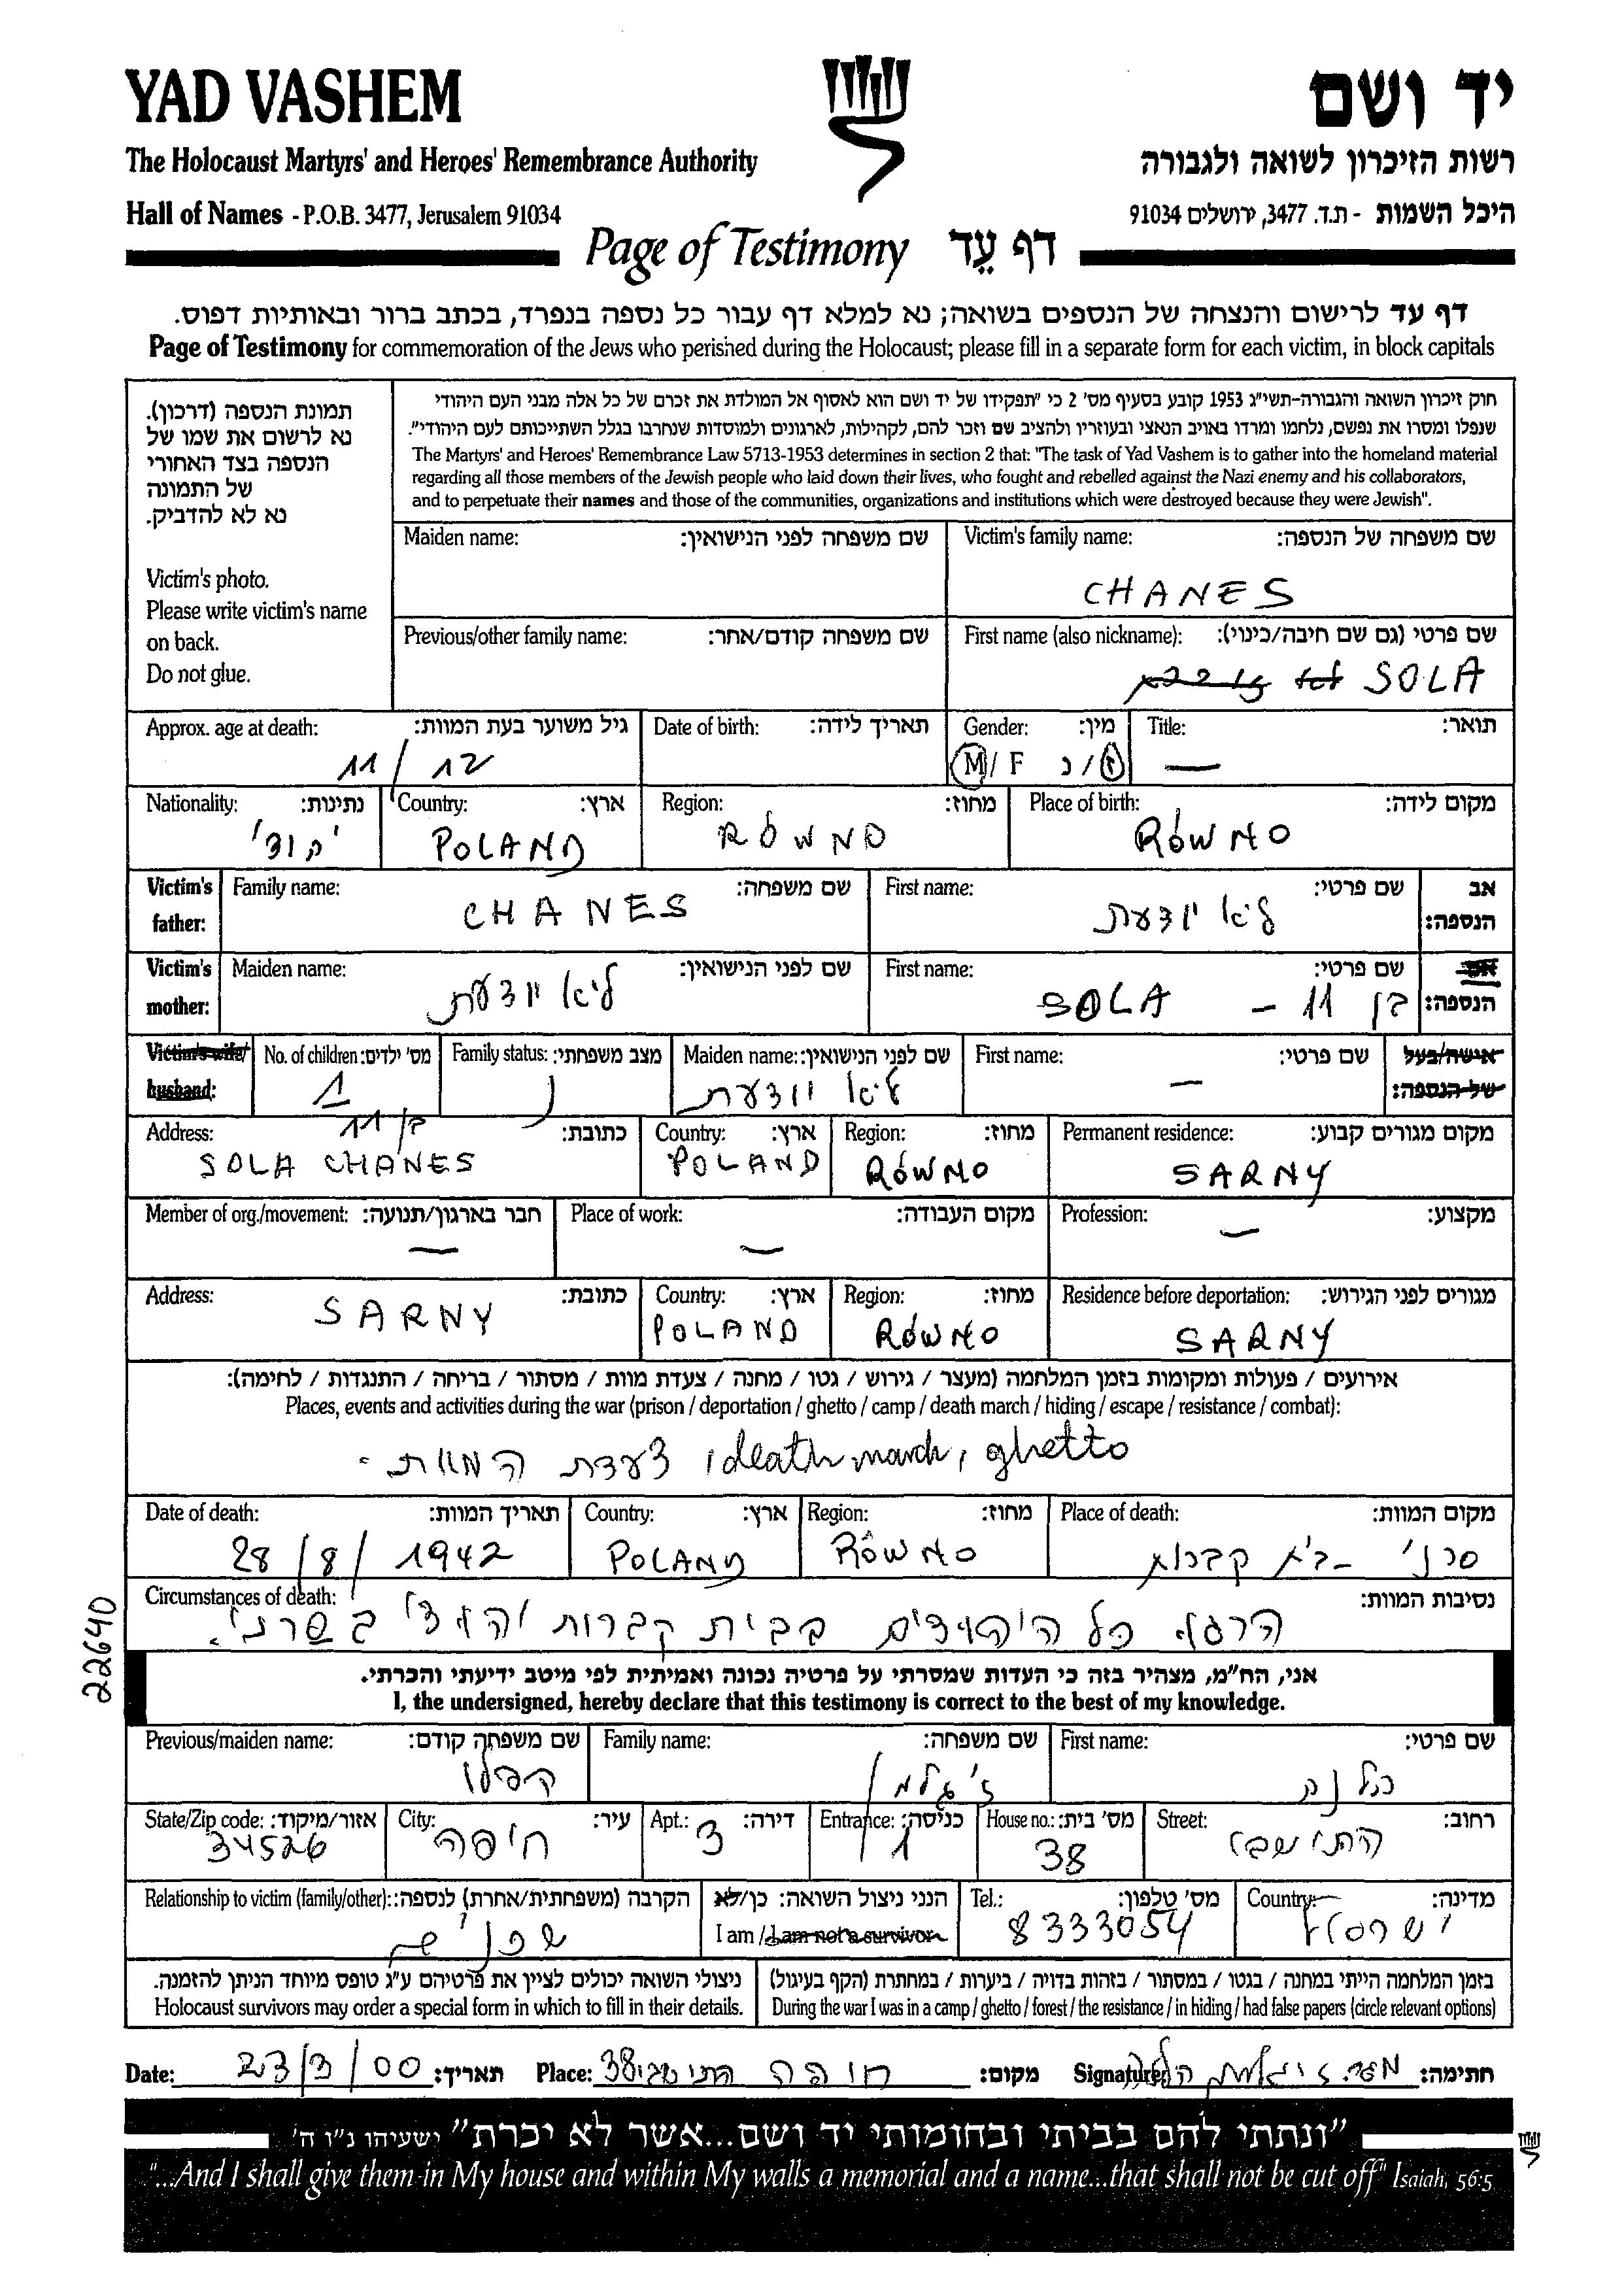 YAD VASHEM
יד ושם
The Holocaust Martyrs' and Heroes' Remembrance Authority
רשות הזיכרון לשואה ולגבורה
Hall of Names - P.O.B. 3477, Jerusalem 91034
היכל השמות - ת.ד. 3477, ירושלים 91034
Page of Testimony דף עֵד
דף עד לרישום והנצחה של הנספים בשואה; נא למלא דף עבור כל נספה בנפרד, בכתב ברור ובאותיות דפוס.
Page of Testimony for commemoration of the Jews who perished during the Holocaust; please fill in a separate form for each victim, in block capitals
תמונת הנספה (דרכון).
נא לרשום את שמו של
הנספה בצד האחורי
של התמונה
נא לא להדביק.
Victim's photo.
Please write victim's name
on back.
Do not glue.
חוק זיכרון השואה והגבורה-תשי"ג 1953 קובע בסעיף מס' 2 כי "תפקידו של יד ושם הוא לאסוף אל המולדת את זכרם של כל אלה מבני העם היהודי
שנפלו ומסרו את נפשם, נלחמו ומרדו באויב הנאצי ובעוזריו ולהציב שם וזכר להם, לקהילות, לארגונים ולמוסדות שנחרבו בגלל השתייכותם לעם היהודי".
The Martyrs' and Heroes' Remembrance Law 5713-1953 determines in section 2 that: "The task of Yad Vashem is to gather into the homeland material
regarding all those members of the Jewish people who laid down their lives, who fought and rebelled against the Nazi enemy and his collaborators,
and to perpetuate their names and those of the communities, organizations and institutions which were destroyed because they were Jewish".
Maiden name: שם משפחה לפני הנישואין: Victim's family name: שם משפחה של הנספה:
CHANES
Previous/other family name: שם משפחה קודם/אחר: First name (also nickname): שם פרטי (גם שם חיבה/כינוי):
SOLA
Approx. age at death: גיל משוער בעת המוות: Date of birth: תאריך לידה: Gender: מין: Title: תואר:
11/12 M/F ז/נ —
Nationality: נתינות: Country: ארץ: Region: מחוז: Place of birth: מקום לידה:
יהודי POLAND RÓWNO RÓWNO
Victim's father: Family name: שם משפחה: First name: שם פרטי: אב הנספה:
CHANES לא יודעת
Victim's mother: Maiden name: שם לפני הנישואין: First name: שם פרטי: אם הנספה:
לא יודעת SOLA - בן 11
Victim's wife/ husband: No. of children: מס' ילדים: Family status: מצב משפחתי: Maiden name: שם לפני הנישואין: First name: שם פרטי: אישה/בעל של הנספה:
1 לא יודעת —
Address: כתובת: Country: ארץ: Region: מחוז: Permanent residence: מקום מגורים קבוע:
בן 11
SOLA CHANES POLAND RÓWNO SARNY
Member of org./movement: חבר בארגון/תנועה: Place of work: מקום העבודה: Profession: מקצוע:
— — —
Address: כתובת: Country: ארץ: Region: מחוז: Residence before deportation: מגורים לפני הגירוש:
SARNY POLAND RÓWNO SARNY
אירועים / פעולות ומקומות בזמן המלחמה (מעצר / גירוש / גטו / מחנה / צעדת מוות / מסתור / בריחה / התנגדות / לחימה):
Places, events and activities during the war (prison / deportation / ghetto / camp / death march / hiding / escape / resistance / combat):
צעדת המוות. death march, ghetto
Date of death: תאריך המוות: Country: ארץ: Region: מחוז: Place of death: מקום המוות:
28/8/1942 POLAND RÓWNO סרני - בית קברות
Circumstances of death: נסיבות המוות:
כל היהודים בבית קברות
22640
אני, הח"מ, מצהיר בזה כי העדות שמסרתי על פרטיה נכונה ואמיתית לפי מיטב ידיעתי והכרתי.
I, the undersigned, hereby declare that this testimony is correct to the best of my knowledge.
Previous/maiden name: שם משפחה קודם: Family name: שם משפחה: First name: שם פרטי:
State/Zip code: אזור/מיקוד: City: עיר: Apt.: דירה: Entrance: כניסה: House no.: מס' בית: Street: רחוב:
34526 חיפה 3 1 38 התישבי
Relationship to victim (family/other): הקרבה (משפחתית/אחרת) לנספה: הנני ניצול השואה: כן/לא Tel.: מס' טלפון: Country: מדינה:
I am / I am not a survivor 8333054 ישראל
שכנים
ניצולי השואה יכולים לציין את פרטיהם ע"ג טופס מיוחד הניתן להזמנה.
Holocaust survivors may order a special form in which to fill in their details.
בזמן המלחמה הייתי במחנה / בגטו / במסתור / בזהות בדויה / ביערות / במחתרת (הקף בעיגול)
During the war I was in a camp / ghetto / forest / the resistance / in hiding / had false papers (circle relevant options)
Date: 23/3/00 תאריך: Place: חיפה התישבי 38 מקום: Signature: חתימה:
"ונתתי להם בביתי ובחומותי יד ושם...אשר לא יכרת" ישעיהו נ"ו ה'
"...And I shall give them in My house and within My walls a memorial and a name...that shall not be cut off" Isaiah, 56:5